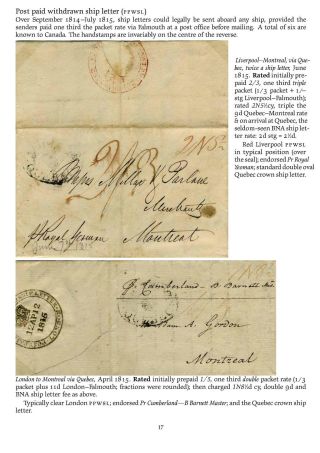 Post paid withdrawn ship letter (PPWSL)
Over September 1814–July 1815, ship letters could legally be sent aboard any ship, provided the
senders paid one third the packet rate via Falmouth at a post office before mailing. A total of six are
known to Canada. The handstamps are invariably on the centre of the reverse.
Liverpool–Montreal, via Que-
bec, twice a ship letter, June
1815. Rated initially pre-
paid 2/3, one third triple
packet (1/3 packet + 1/–
stg Liverpool–Falmouth);
rated 2N5½cy, triple the
9d Quebec–Montreal rate
& on arrival at Quebec, the
seldom-seen BNA ship let-
ter rate: 2d stg = 2½d.
Red Liverpool PPWSL
in typical position (over
the seal); endorsed Pr Royal
Yeoman; standard double oval
Quebec crown ship letter.
Millar & Parlane
Merchants
Montreal
London to Montreal via Quebec, April 1815. Rated initially prepaid 1/3, one third double packet rate (1/3
packet plus 11d London–Falmouth; fractions were rounded); then charged 1N8½d cy, double 9d and
BNA ship letter fee as above.
Typically clear London PPWSL; endorsed Pr Cumberland—B Barnett Master; and the Quebec crown ship
letter.
12 AP 12
1815
Cumberland – B Barnett
A. Gordon
Montreal
17